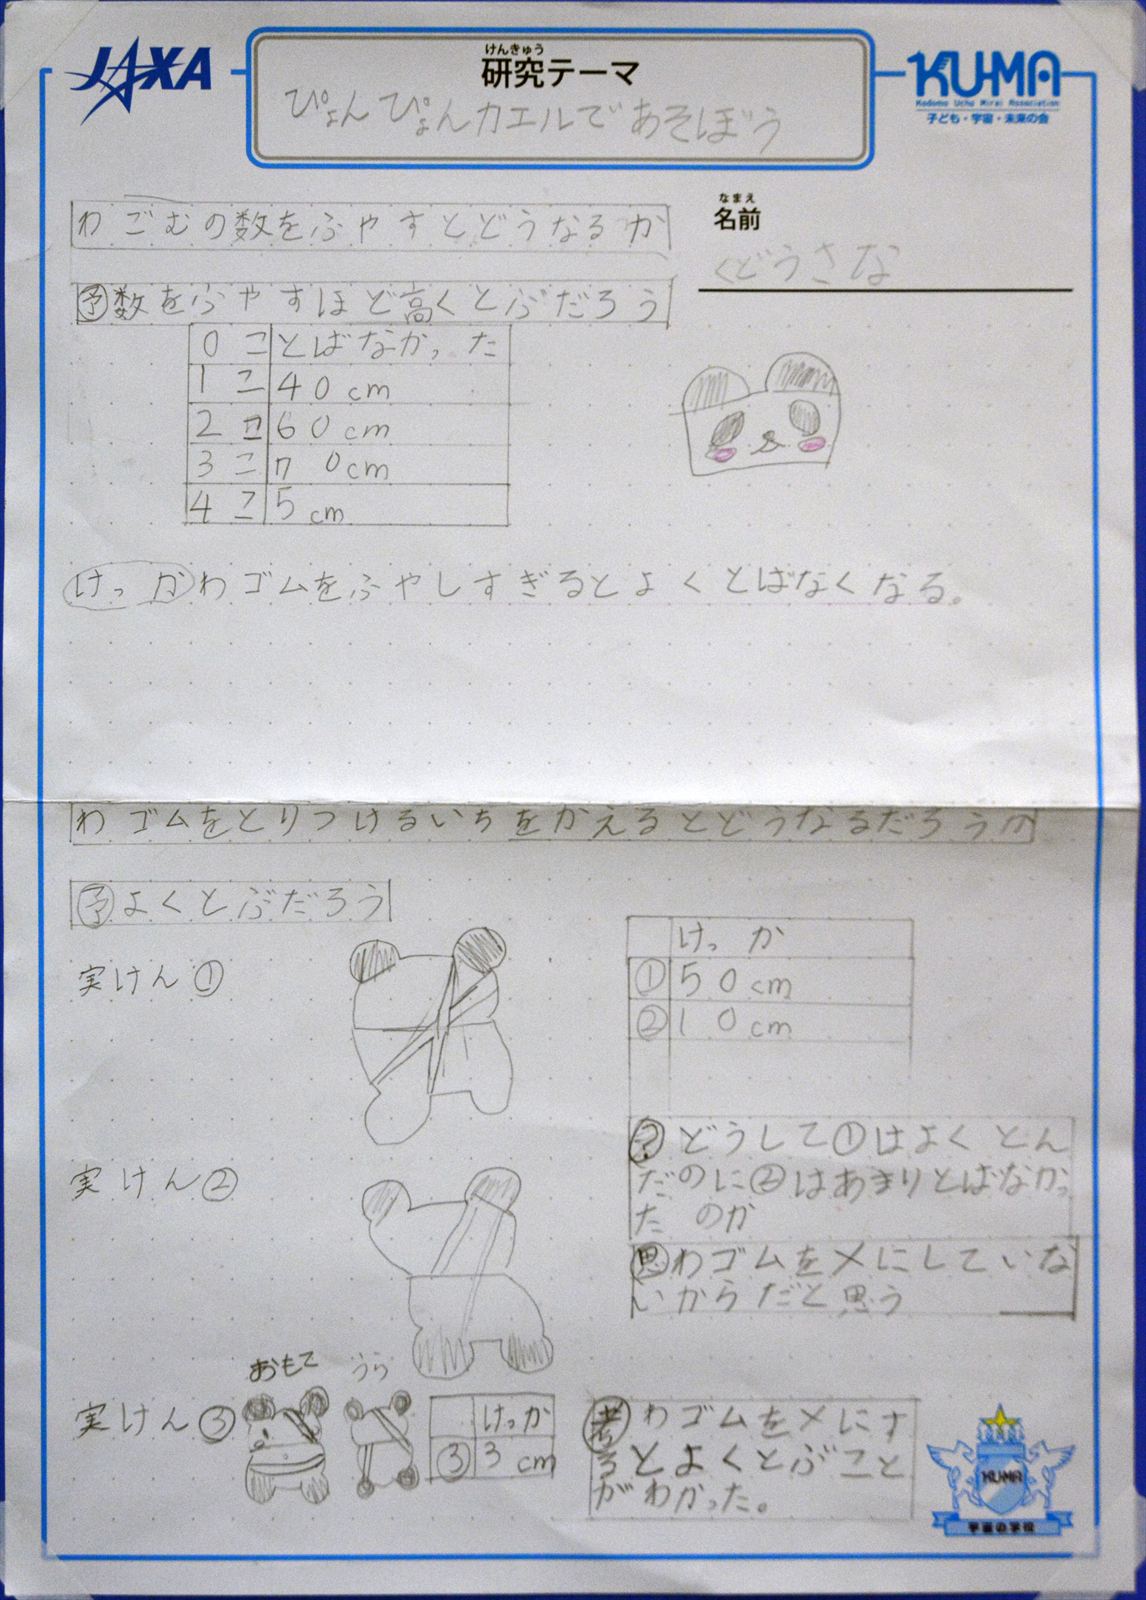 JAXA
けんきゅう
研究テーマ
ぴょんぴょんカエルであそぼう
KU-MA
Kodomo Uchu Mirai Association
子ども・宇宙・未来の会
わごむの数をふやすとどうなるか
なまえ
名前
くどうさな
予数をふやすほど高くとぶだろう
0こ とばなかった
1こ 40cm
2コ 60cm
3こ 70cm
4こ 5cm
けっか わゴムをふやしすぎるとよくとばなくなる。
わゴムをとりつけるいちをかえるとどうなるだろうか
予よくとぶだろう
実けん①
けっか
① 50cm
② 10cm
? どうして①はよくとん
だのに②はあまりとばなかっ
たのか
実けん②
思わゴムを〆にしていな
いからだと思う
おもて うら
実けん③
けっか
③ 3cm
考わゴムを〆にす
るとよくとぶこと
がわかった。
KU-MA
宇宙の学校